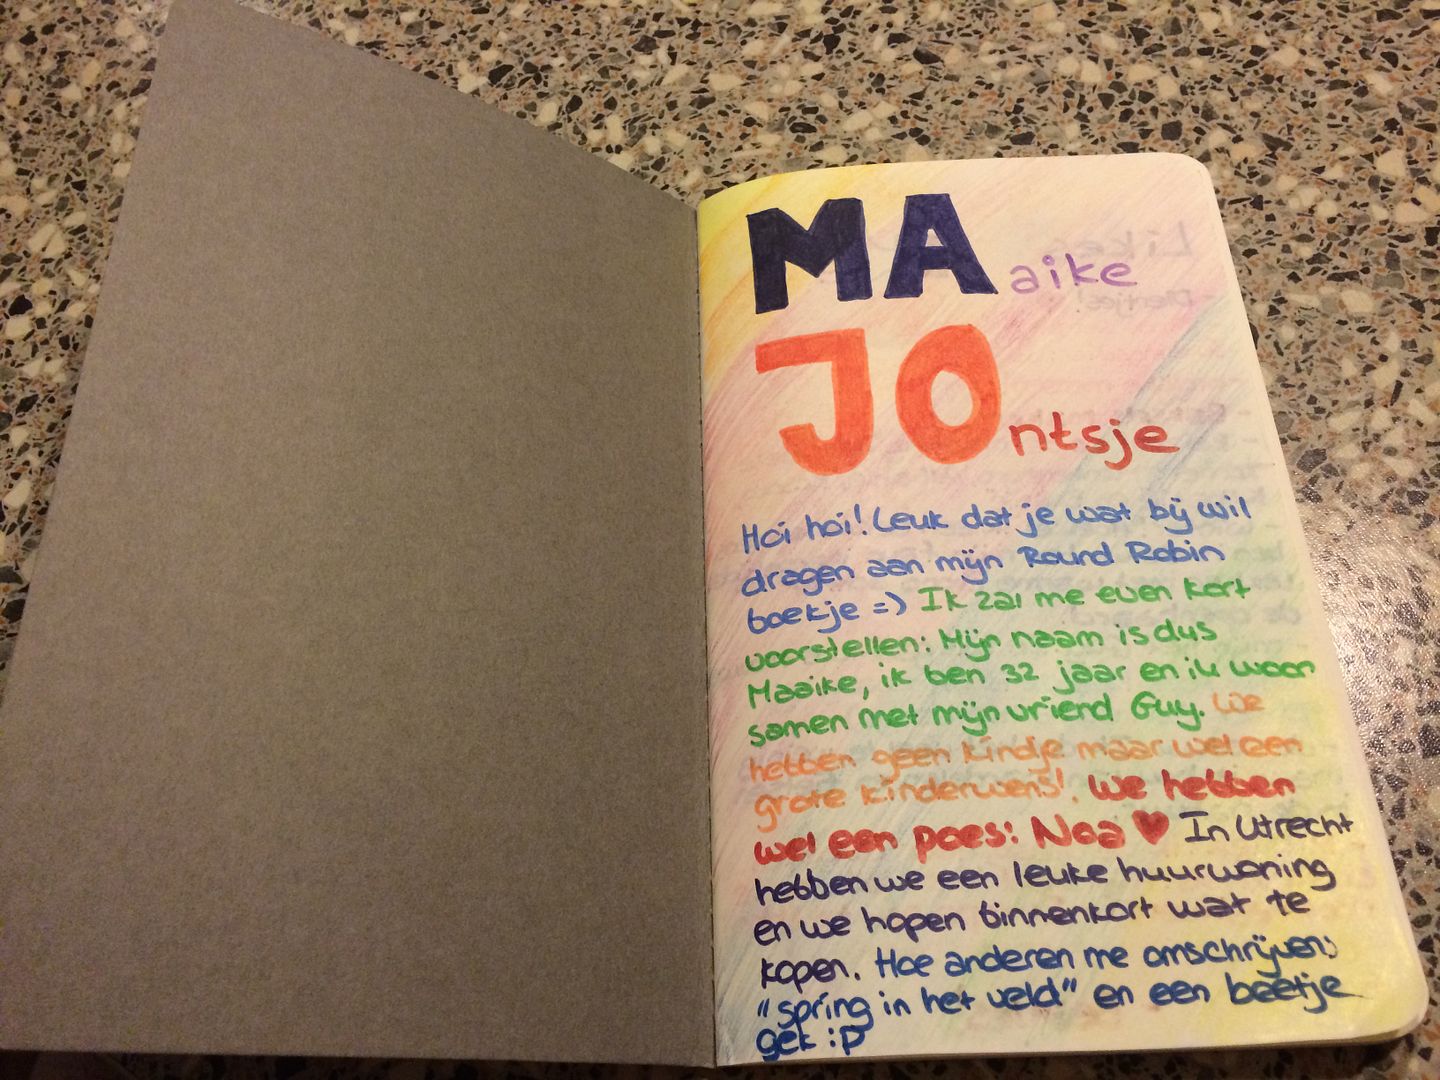 MAaike
JOntsje
Hoi hoi! Leuk dat je wat bij wil
dragen aan mijn Round Robin
boekje =) Ik zal me even kort
voorstellen: Mijn naam is dus
Maaike, ik ben 32 jaar en ik woon
samen met mijn vriend Guy. We
hebben geen kindje maar wel een
grote kinderwens!. We hebben
wel een poes: Noa ♥ In Utrecht
hebben we een leuke huurwoning
en we hopen binnenkort wat te
kopen. Hoe anderen me omschrijven:
"spring in het veld" en een beetje
gek :P